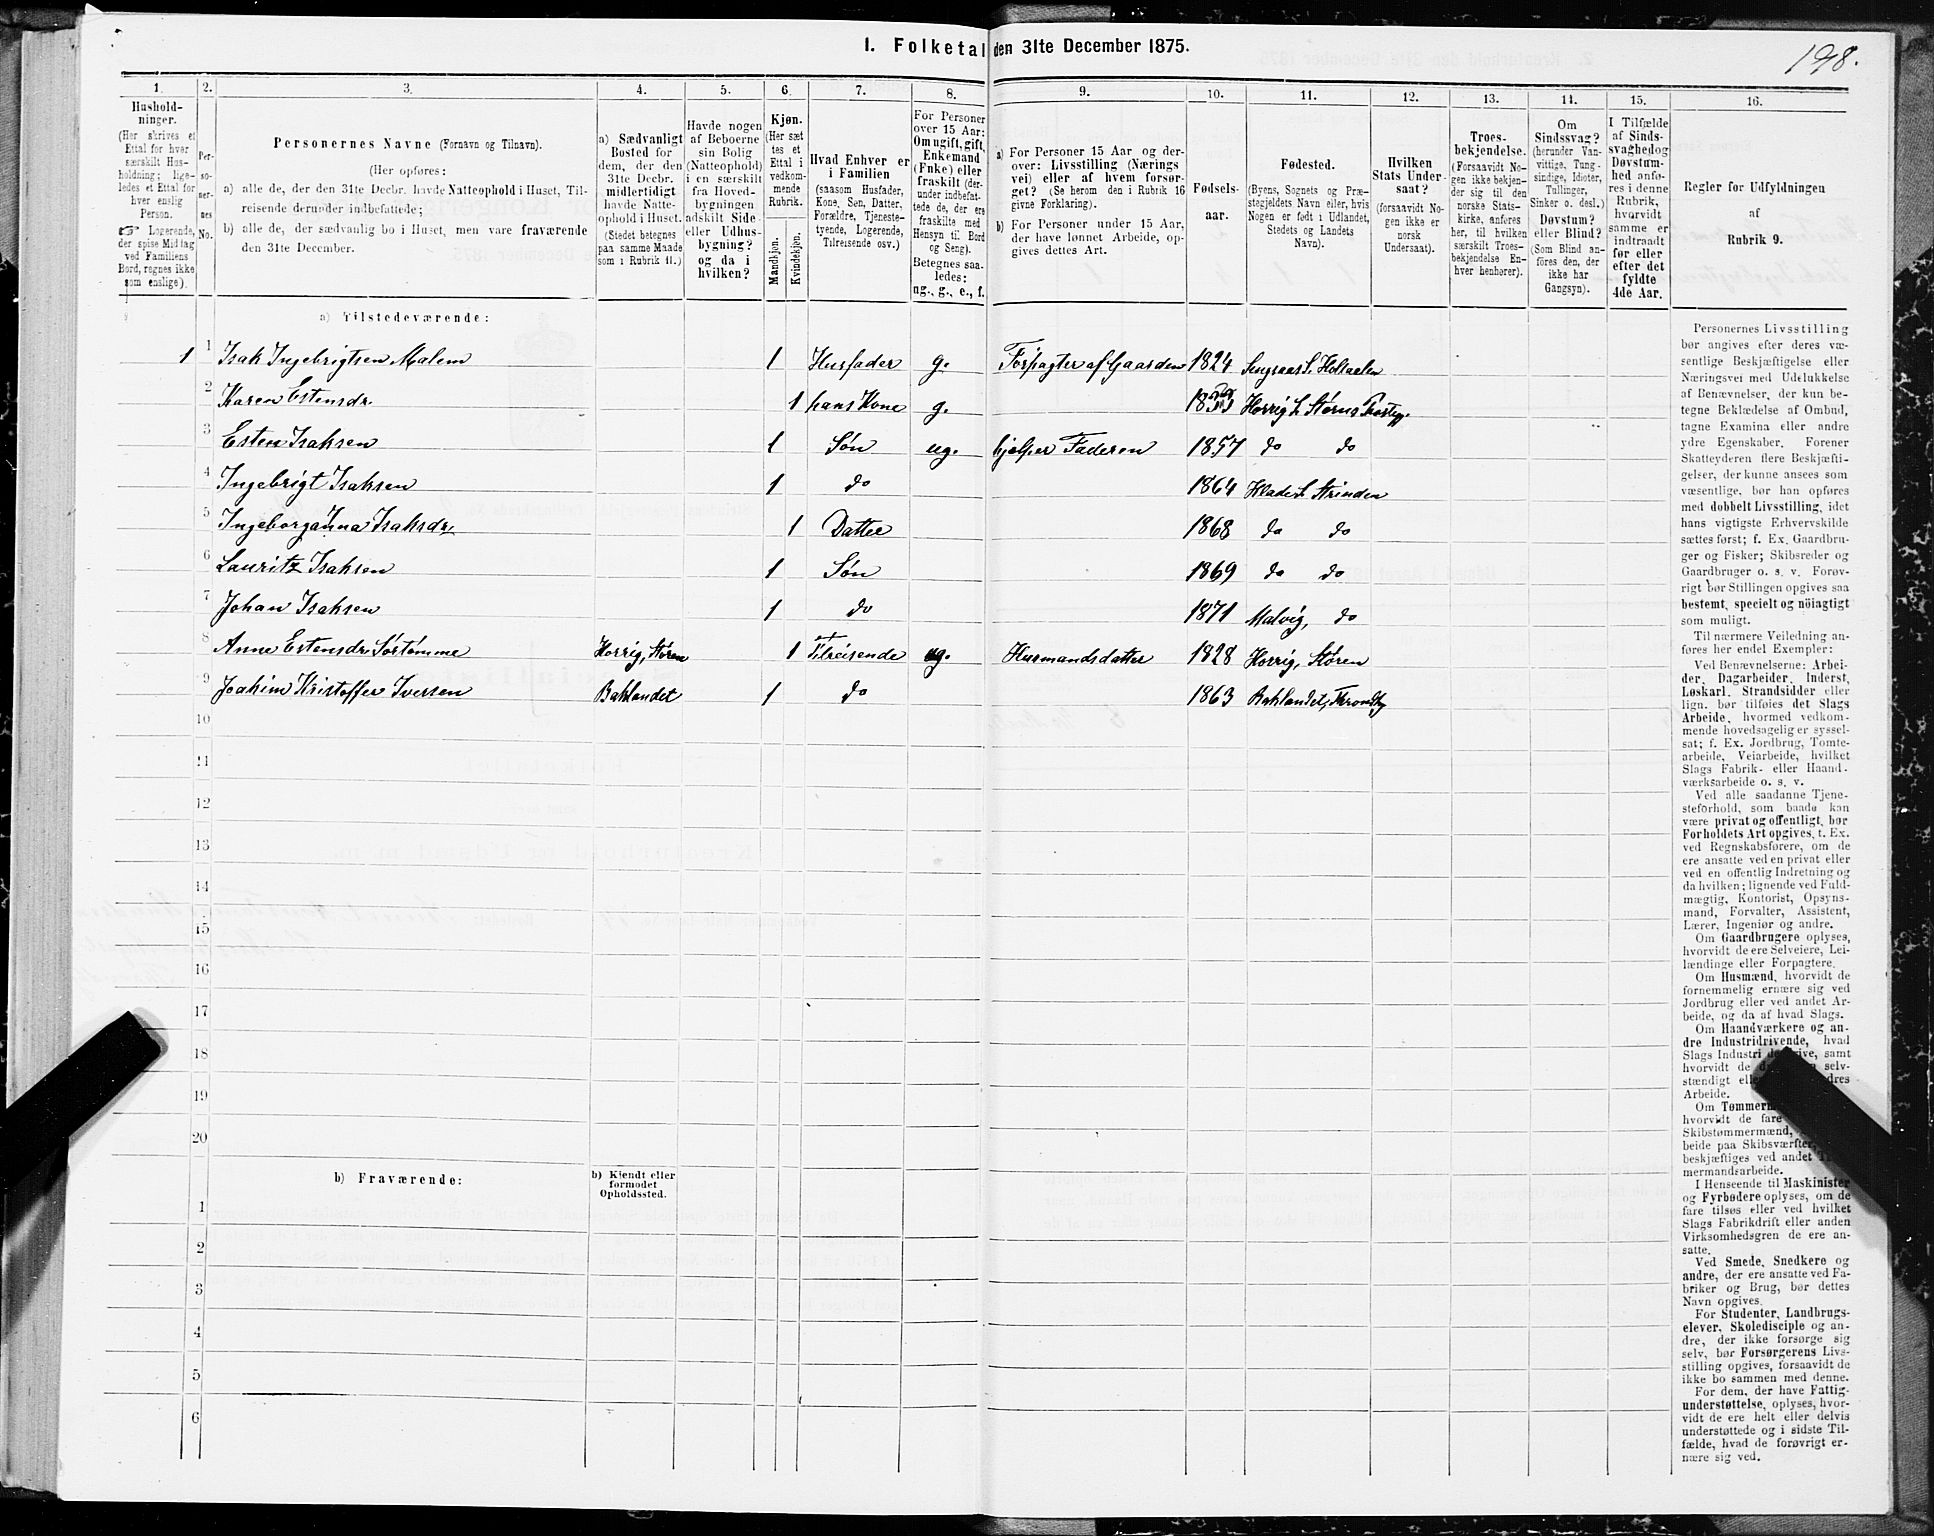 I. Folketal den 31te December 1875.
198.
1.
Hushold-
ninger.
(Her skrives et
Ettal for hver
særskilt Hus-
holdning; lige-
ledes et Ettal for
hver enslig
Person.
Logerende,
der spise Middag
ved Familiens
Bord, regnes ikke
som enslige).
2.
Per-
so-
ner-
nes
No.
3.
Personernes Navne (Fornavn og Tilnavn).
(Her opføres:
a) alle de, der den 31te Decbr. havde Natteophold i Huset, Til-
reisende derunder indbefattede;
b) alle de, der sædvanlig bo i Huset, men vare fraværende
den 31te December.
4.
a) Sædvanligt
Bosted for
dem, der den
31te Decbr.
midlertidigt
havde Natte-
ophold i Huset.
(Stedet betegnes
paa samme Maade
som i Rubrik 11.)
5.
Havde nogen
af Beboerne
sin Bolig
(Natteophold)
i en særskilt
fra Hoved-
bygningen
adskilt Side-
eller Udhus-
bygning?
og da i
hvilken?
6.
Kjøn.
(Her sæt-
tes et
Ettal i
vedkom-
mende
Rubrik.
Mandkjøn.
Kvindekjøn.
7.
Hvad Enhver er
i Familien
(saasom Husfader,
Kone, Søn, Datter,
Forældre, Tjeneste-
tyende, Logerende,
Tilreisende osv.)
8.
For Personer
over 15 Aar:
Om ugift, gift,
Enkemand
(Enke) eller
fraskilt (der-
under indbefat-
tede de, der ere
fraskilte med
Hensyn til Bord
og Seng).
Betegnes saa-
ledes:
ug., g., e., f.
9.
a) For Personer 15 Aar og der-
over: Livsstilling (Nærings-
vei) eller af hvem forsør-
get? (Se herom den i Rubrik 16
givne Forklaring).
b) For Personer under 15 Aar,
der have lønnet Arbeide, op-
gives dettes Art.
10.
Fødsels-
aar.
11.
Fødested.
(Byens, Sognets og Præ-
stegjeldets Navn eller, hvis
Nogen er født i Udlandet,
Stedets og Landets
Navn).
12.
Hvilken
Stats Under-
saat?
(forsaavidt No-
gen ikke er
norsk
Undersaat).
13.
Troes-
bekjendelse.
(Forsaavidt No-
gen ikke bekjen-
der sig til den
norske Stats-
kirke, anføres
her, til hvilken
særskilt Troes-
bekjendelse En-
hver henhører).
14.
Om
Sindssvag?
(herunder Van-
vittige, Tung-
sindige, Idioter,
Tullinger,
Sinker o. desl.)
Døvstum?
eller Blind?
(Som Blind an-
føres den, der
ikke har
Gangsyn).
15.
I Tilfælde
af Sinds-
svaghed og
Døvstum-
hed anfø-
res i denne
Rubrik,
hvorvidt
samme er
indtraadt
før eller
efter det
fyldte
4de Aar.
16.
Regler for Udfyldningen
af
Rubrik 9.
a) Tilstedeværende:
1 1 Isak Ingebrigtsen Malem 1 Husfader g. Forpagter af Gaarden 1824 Singsaas S. Holtaalen
2 Karen Estensdr. 1 hans Kone g. Horrig S. Størens Præstegj.
3 Esten Isaksen 1 Søn ug. hjælper Faderen 1857 do do
4 Ingebrigt Isaksen 1 do 1864 Hlade S. Strinden
5 Ingeborganna Isaksdr. 1 Datter 1868 do do
6 Lauritz Isaksen 1 Søn 1869 do do
7 Johan Isaksen 1 do 1871 Malvig, do
8 Anne Estensdr Sørtømme Horrig, Støren 1 Tilreisende ug. Husmandsdatter 1828 Horrig, Støren
9 Joakim Kristoffer Iversen Baklandet 1 do 1863 Baklandet, Trondhj
10
11
12
13
14
15
16
17
18
19
20
b) Fraværende:
b) Kjendt eller
formodet
Opholdssted.
1
2
3
4
5
6
Personernes Livsstilling
bør angives efter deres væ-
sentlige Beskjæftigelse eller
Næringsvei med Udelukkelse
af Benævnelser, der kun be-
tegne Beklædelse af Ombud,
tagne Examina eller andre
ydre Egenskaber. Forener
Skatteyderen flere Beskjæfti-
gelser, der kunne ansees som
væsentlige, bør han opføres
med dobbelt Livsstilling, idet
hans vigtigste Erhvervskilde
sættes først; f. Ex. Gaardbru-
ger og Fisker; Skibsreder og
Gaardbruger o. s. v. Forøv-
rigt bør Stillingen opgives saa
bestemt, specielt og nöiagtigt
som muligt.
Til nærmere Veiledning an-
føres her endel Exempler:
Ved Benævnelserne: Arbei-
der, Dagarbeider, Inderst,
Løskarl, Strandsidder eller
lign. bør tilføies det Slags
Arbeide, hvormed vedkom-
mende hovedsagelig er syssel-
sat; f. Ex. Jordbrug, Tomte-
arbeide, Veiarbeide, hvilket
Slags Fabrik- eller Haand-
værksarbeide o. s. v.
Ved alle saadanne Tjene-
steforhold, som baade kan
være privat og offentligt, bør
Forholdets Art opgives, t. Ex.
ved Regnskabsførere, om de
ere ansatte ved en privat eller
ved en offentlig Indretning og
da hvilken; lignende ved Fuld-
mægtig, Kontorist, Opsyns-
mand, Forvalter, Assistent,
Lærer, Ingeniør og andre.
Om Gaardbrugere oplyses,
hvorvidt de ere Selveiere, Lei-
lændinge eller Forpagtere.
Om Husmænd, hvorvidt de
fornemmelig ernære sig ved
Jordbrug eller ved andet Ar-
beide, og da af hvad Slags.
Om Haandværkere og an-
dre Industridrivende, hvad
Slags Industri samt
hvorvidt de selv-
stændigt
Arbeide.
Om
hvorvidt de fare
Skibstømmermænd,
beide paa Skibsværfter,
beskjæftiges ved andet
mermandsarbeide.
I Henseende til Maskinister
og Fyrbødere oplyses, om de
fare tilsøs eller ved hvilket
Slags Fabrikdrift eller anden
Virksomhedsgren de ere an-
satte.
Ved Smede, Snedkere og
andre, der ere ansatte ved Fa-
briker og Brug, bør dettes
Navn opgives.
For Studenter, Landbrugs-
elever, Skoledisciple og an-
dre, der ikke forsørge sig
selv, bør Forsørgerens Livs-
stilling opgives, forsaavidt de
ikke bo sammen med denne.
For dem, der have Fattig-
understøttelse, oplyses, hvor-
vidt de ere helt eller delvis
understøttede og i sidste Til-
fælde, hvad de forøvrigt er-
nære sig ved.